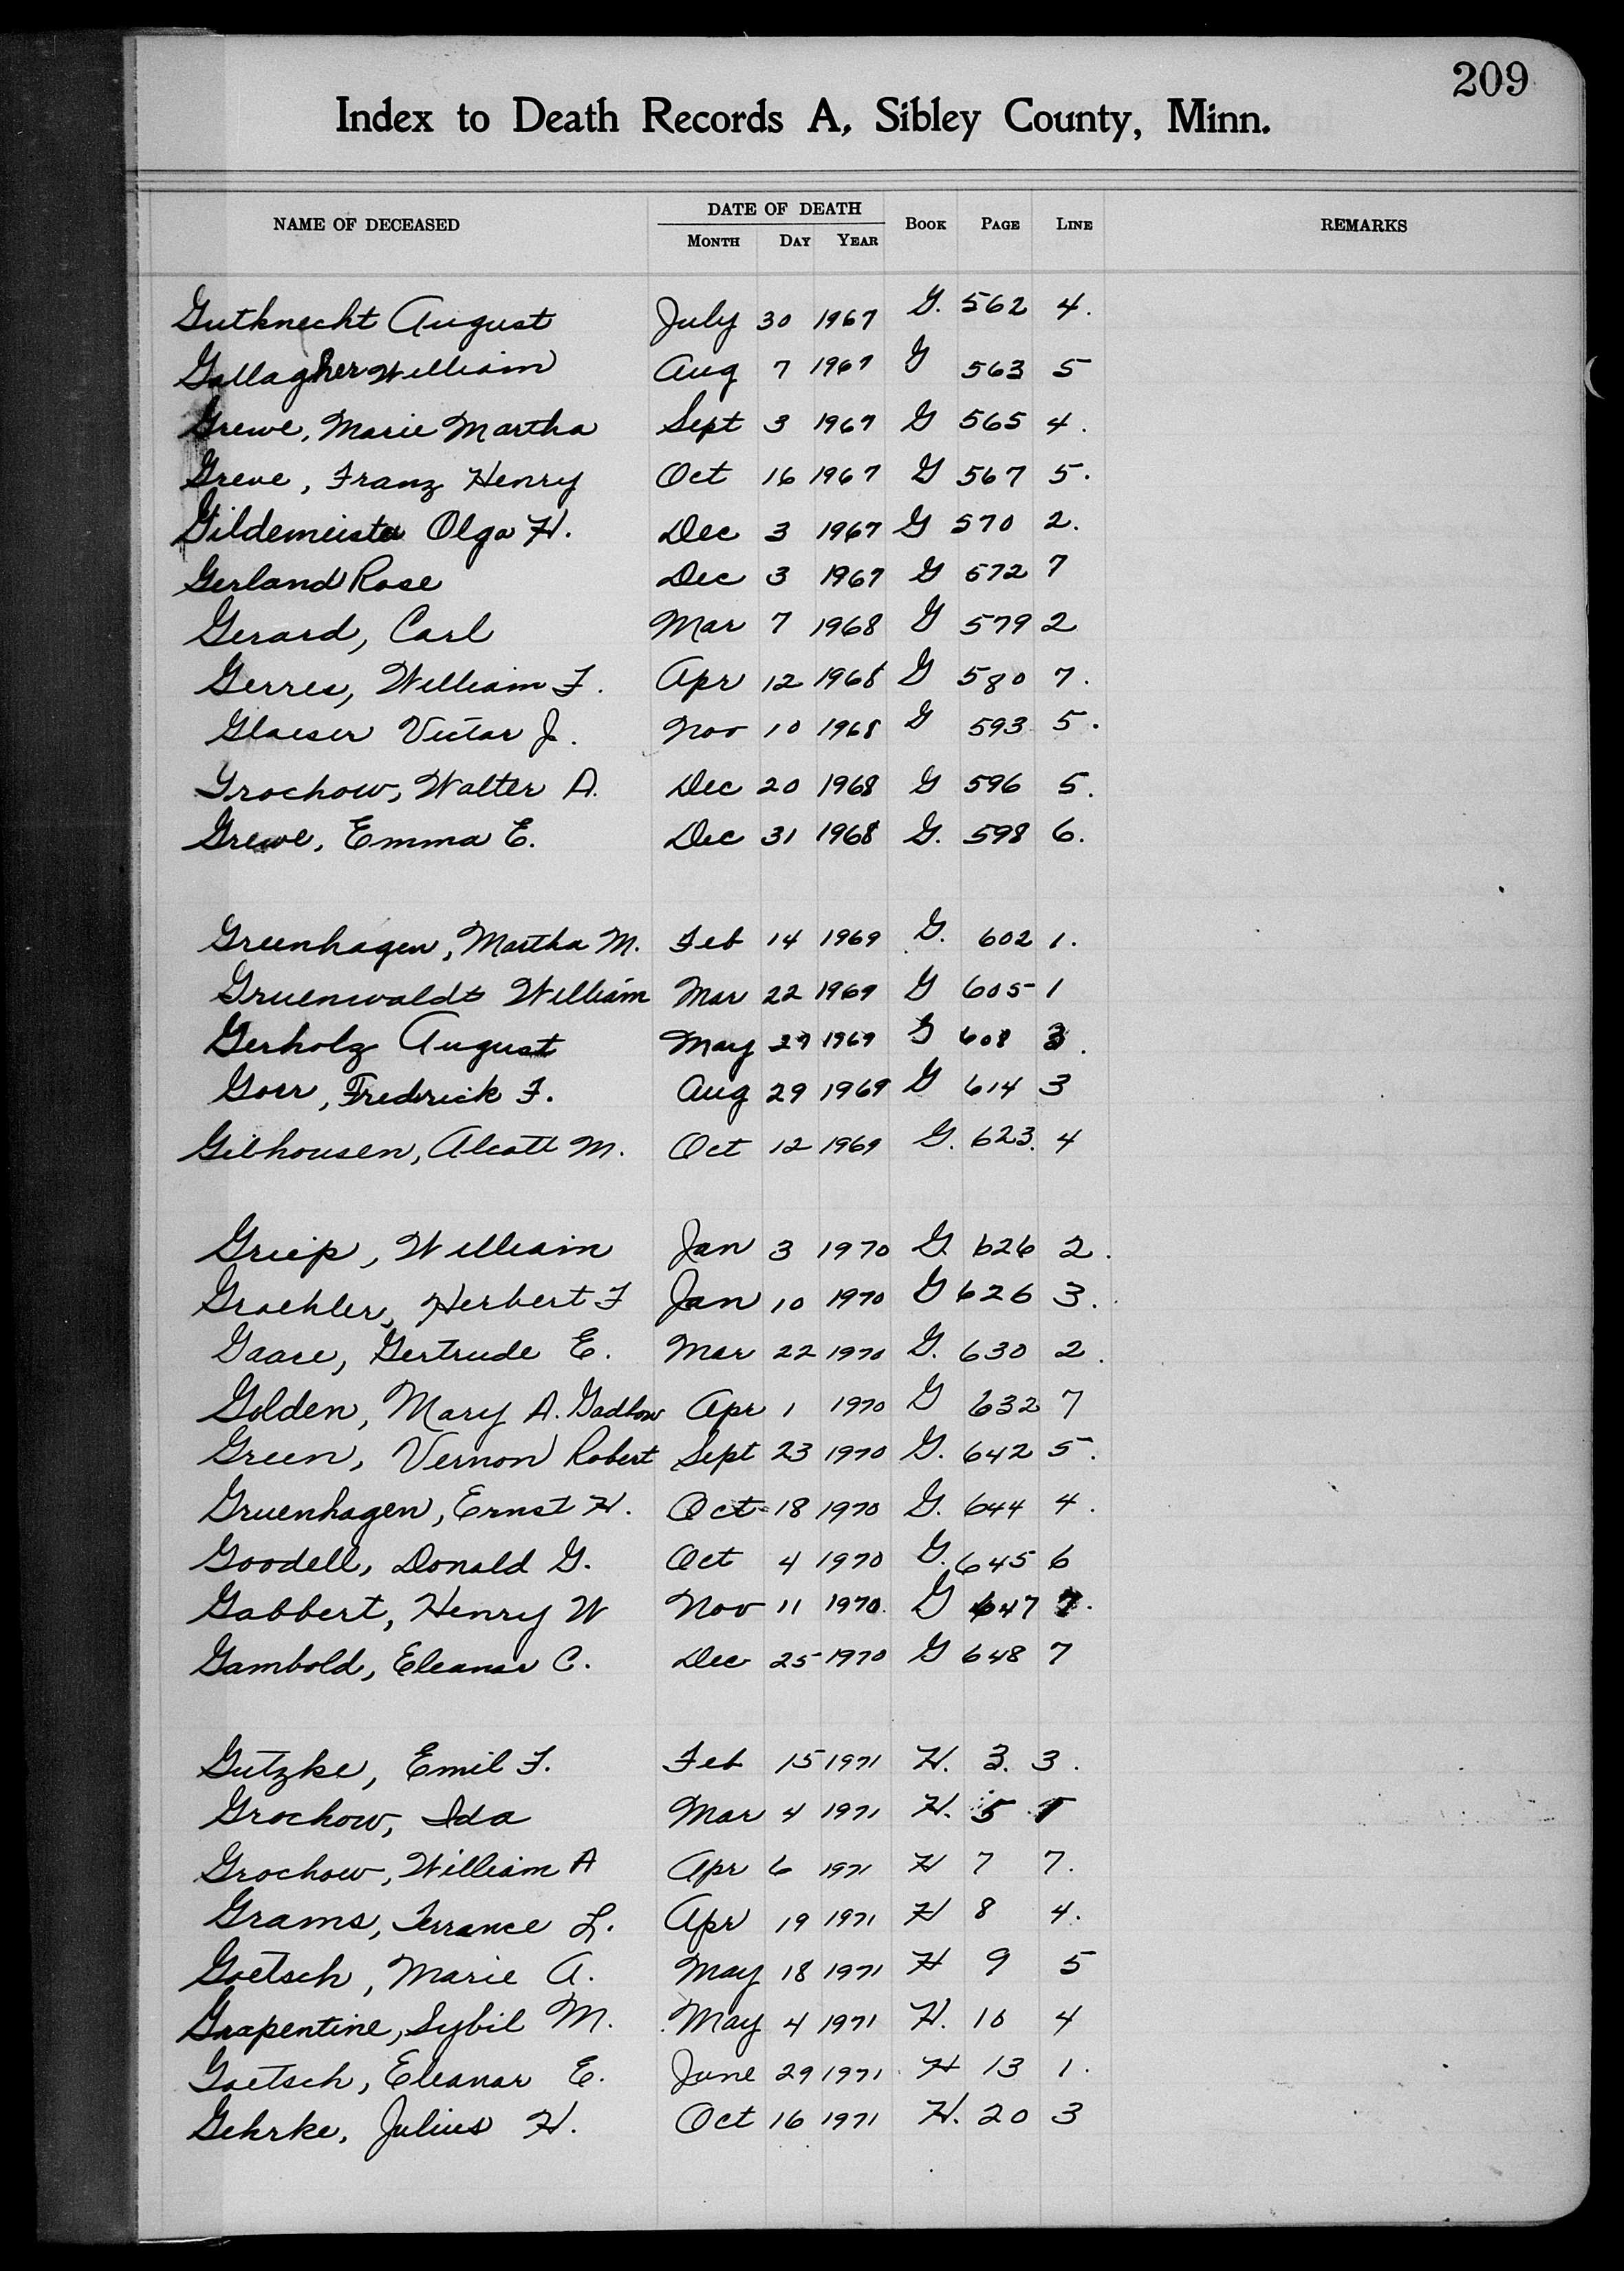 209
Index to Death Records A, Sibley County, Minn.
NAME OF DECEASED DATE OF DEATH BOOK PAGE LINE REMARKS
MONTH DAY YEAR
Gutknecht August July 30 1967 G. 562 4.
Gallagher William Aug 7 1967 G 563 5
Grewe, Marie Martha Sept 3 1967 G 565 4.
Greve, Franz Henry Oct 16 1967 G 567 5.
Gildemeister Olga H. Dec 3 1967 G 570 2.
Gerland Rose Dec 3 1967 G 572 7
Gerard, Carl Mar 7 1968 G 579 2
Gerres, William F. Apr 12 1968 G 580 7.
Glaeser Victor J. Nov 10 1968 G 593 5.
Grochow, Walter A. Dec 20 1968 G 596 5.
Grewe, Emma E. Dec 31 1968 G. 598 6.
Greenhagen, Martha M. Feb 14 1969 G. 602 1.
Gruenwaldt William Mar 22 1969 G 605 1
Gerholz August May 29 1969 G 608 3.
Goer, Fredrick F. Aug 29 1969 G 614 3
Gibhousen, Alcott M. Oct 12 1969 G. 623. 4
Griep, William Jan 3 1970 G. 626 2.
Graehler, Herbert F Jan 10 1970 G 626 3.
Gaare, Gertrude E. Mar 22 1970 G. 630 2.
Golden, Mary A. Gadbow Apr 1 1970 G 632 7
Green, Vernon Robert Sept 23 1970 G. 642 5.
Gruenhagen, Ernst H. Oct 18 1970 G. 644 4.
Goodell, Donald G. Oct 4 1970 G. 645 6
Gabbert, Henry W Nov 11 1970. G 647 7.
Gambold, Eleanor C. Dec 25 1970 G 648 7
Gutzke, Emil F. Feb 15 1971 H. 3. 3.
Grochow, Ida Mar 4 1971 H. 5
Grochow, William A Apr 6 1971 H 7 7.
Grams, Terrance L. Apr 19 1971 H 8 4.
Goetsch, Marie A. May 18 1971 H 9 5
Grapentine, Sybil M. May 4 1971 H. 10 4
Goetsch, Eleanor E. June 29 1971 H 13 1.
Gehrke, Julius H. Oct 16 1971 H. 20 3